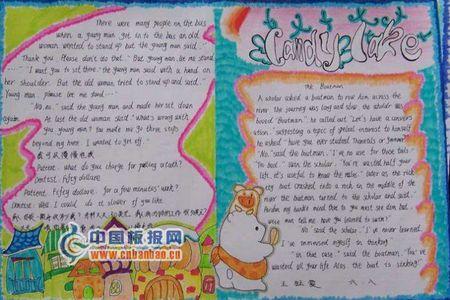 There were many people on the bus
when a young man got in to the bus an old
woman wanted to stand up but the young man said
Thank you. Please don't do that." "But young man, let me stand
"I want you to sit there" the young man said with a hand on
her shoulder. But the old woman tried to stand up and said
"Young man, please let me stand
"No no." said the young man and made her sit down
again
At last the old woman said "what's wrong with
you young man? You made me go three stops
beyond my home. I wanted to get off.
Patient: what do you charge for pulling a tooth?
Dentist: Fifty dollars
Patient: Fifty dollars for a few minutes' work?
Dentist: Well I could do it slower if you like.
Candy Lake
The Boatman
A scholar asked a boatman to row him across the
river. The journey was long and slow the scholar was
bored. "Boatman." he called out. "Let's have a convers-
ation." suggesting a topic of special interest to himself
he asked "have you ever studied Phonetics or Grammar?"
"No." said the boatman, "I've no use for those tools."
"Too bad." said the scholar. "You've wasted half your
life. It's useful to know the rules." Later as the rick-
ety boat crashed into a rock in the middle of the
river the boatman turned to the scholar and said:
"Pardon my humble mind that to you must see dim but
wise man tell me have you learned to swim?"
"No" said the scholar. "I've never learned.
I've immersed myself in thinking"
"in that case" said the boatman. "You've
wasted all your life. Alas the boat is sinking"
中国板报网
www.cnbanbao.cn